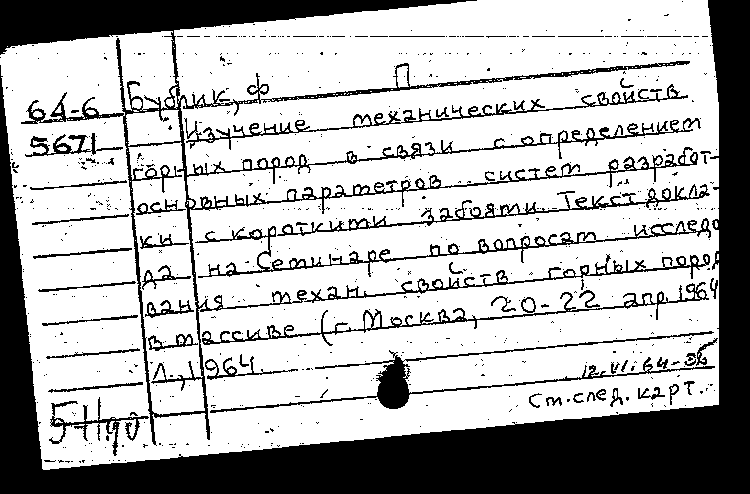 П
64-6 Бублик, Ф
5671 Изучение механических свойств
горных пород в связи с определением
основных параметров систем разработ-
ки с короткими забоями. Текст докла-
да на Семинаре по вопросам исследо
вания механ. свойств горных пород
в массиве (г. Москва, 20-22 апр. 1964
Л., 1964.
12.VI.64-
См. след. карт.